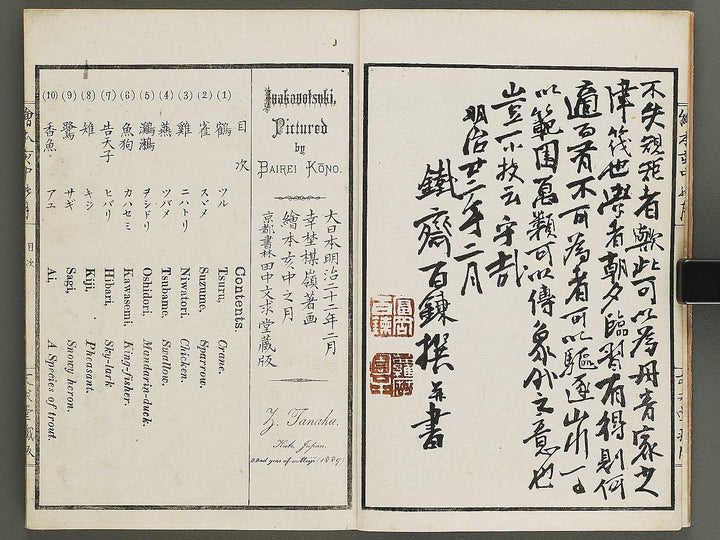 不失規矩者歟此可以為丹青家之
津筏世學者朝夕臨習有得則何
適而有不可為者可以驅逐山川一
以範圍万類可以傳象外之意也
豈一小技云乎哉
明治廿二年二月
鐵齋百鍊撰并書
Inakanotsuki,
Pictured
by
BAIREI KŌNO.
大日本明治二十二年二月
幸埜楳嶺著画
繪本亥中之月
京都書林田中文求堂藏版
Z. Tanaka.
Kioto Japan.
22nd year of Meiji/1889
目次
Contents.
(1) 鶴 ツル Tsuru, Crane.
(2) 雀 スヾメ Suzume, Sparrow.
(3) 雞 ニハトリ Niwatori, Chicken.
(4) 燕 ツバメ Tsubame, Swallow.
(5) 鸂鶒 ヲシドリ Oshidori, Mandarin-duck.
(6) 魚狗 カハセミ Kawasemi, King-fisher.
(7) 告天子 ヒバリ Hibari, Sky-lark
(8) 雉 キジ Kiji, Pheasant.
(9) 鷺 サギ Sagi, Snowy heron.
(10) 香魚 アユ Ai, A Species of trout.
目次